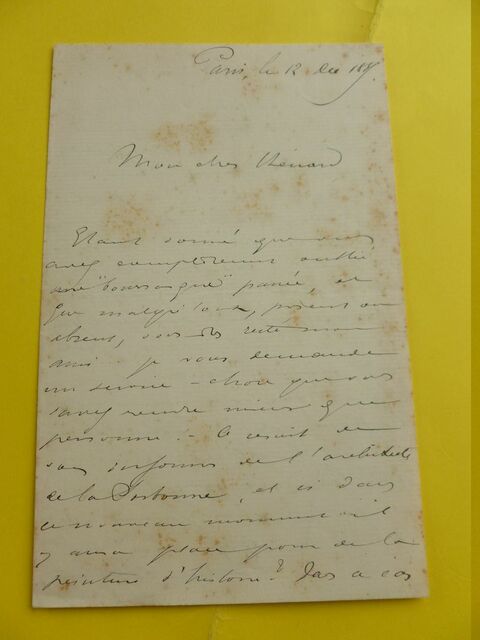 Paris, le 12 Dec 188
Mon cher Thénard
Etant donné que vous
avez complètement oublié
une passée, et
que malgré tout, présent ou
absent, vous êtes resté mon
ami je vous demande
un service – chose que vous
savez rendre mieux que
personne. – Ce serait de
vous informer de l'architecte
de la Sorbonne, et si dans
ce nouveau monument il
y aura place pour de la
peinture d'histoire? Dans ce cas